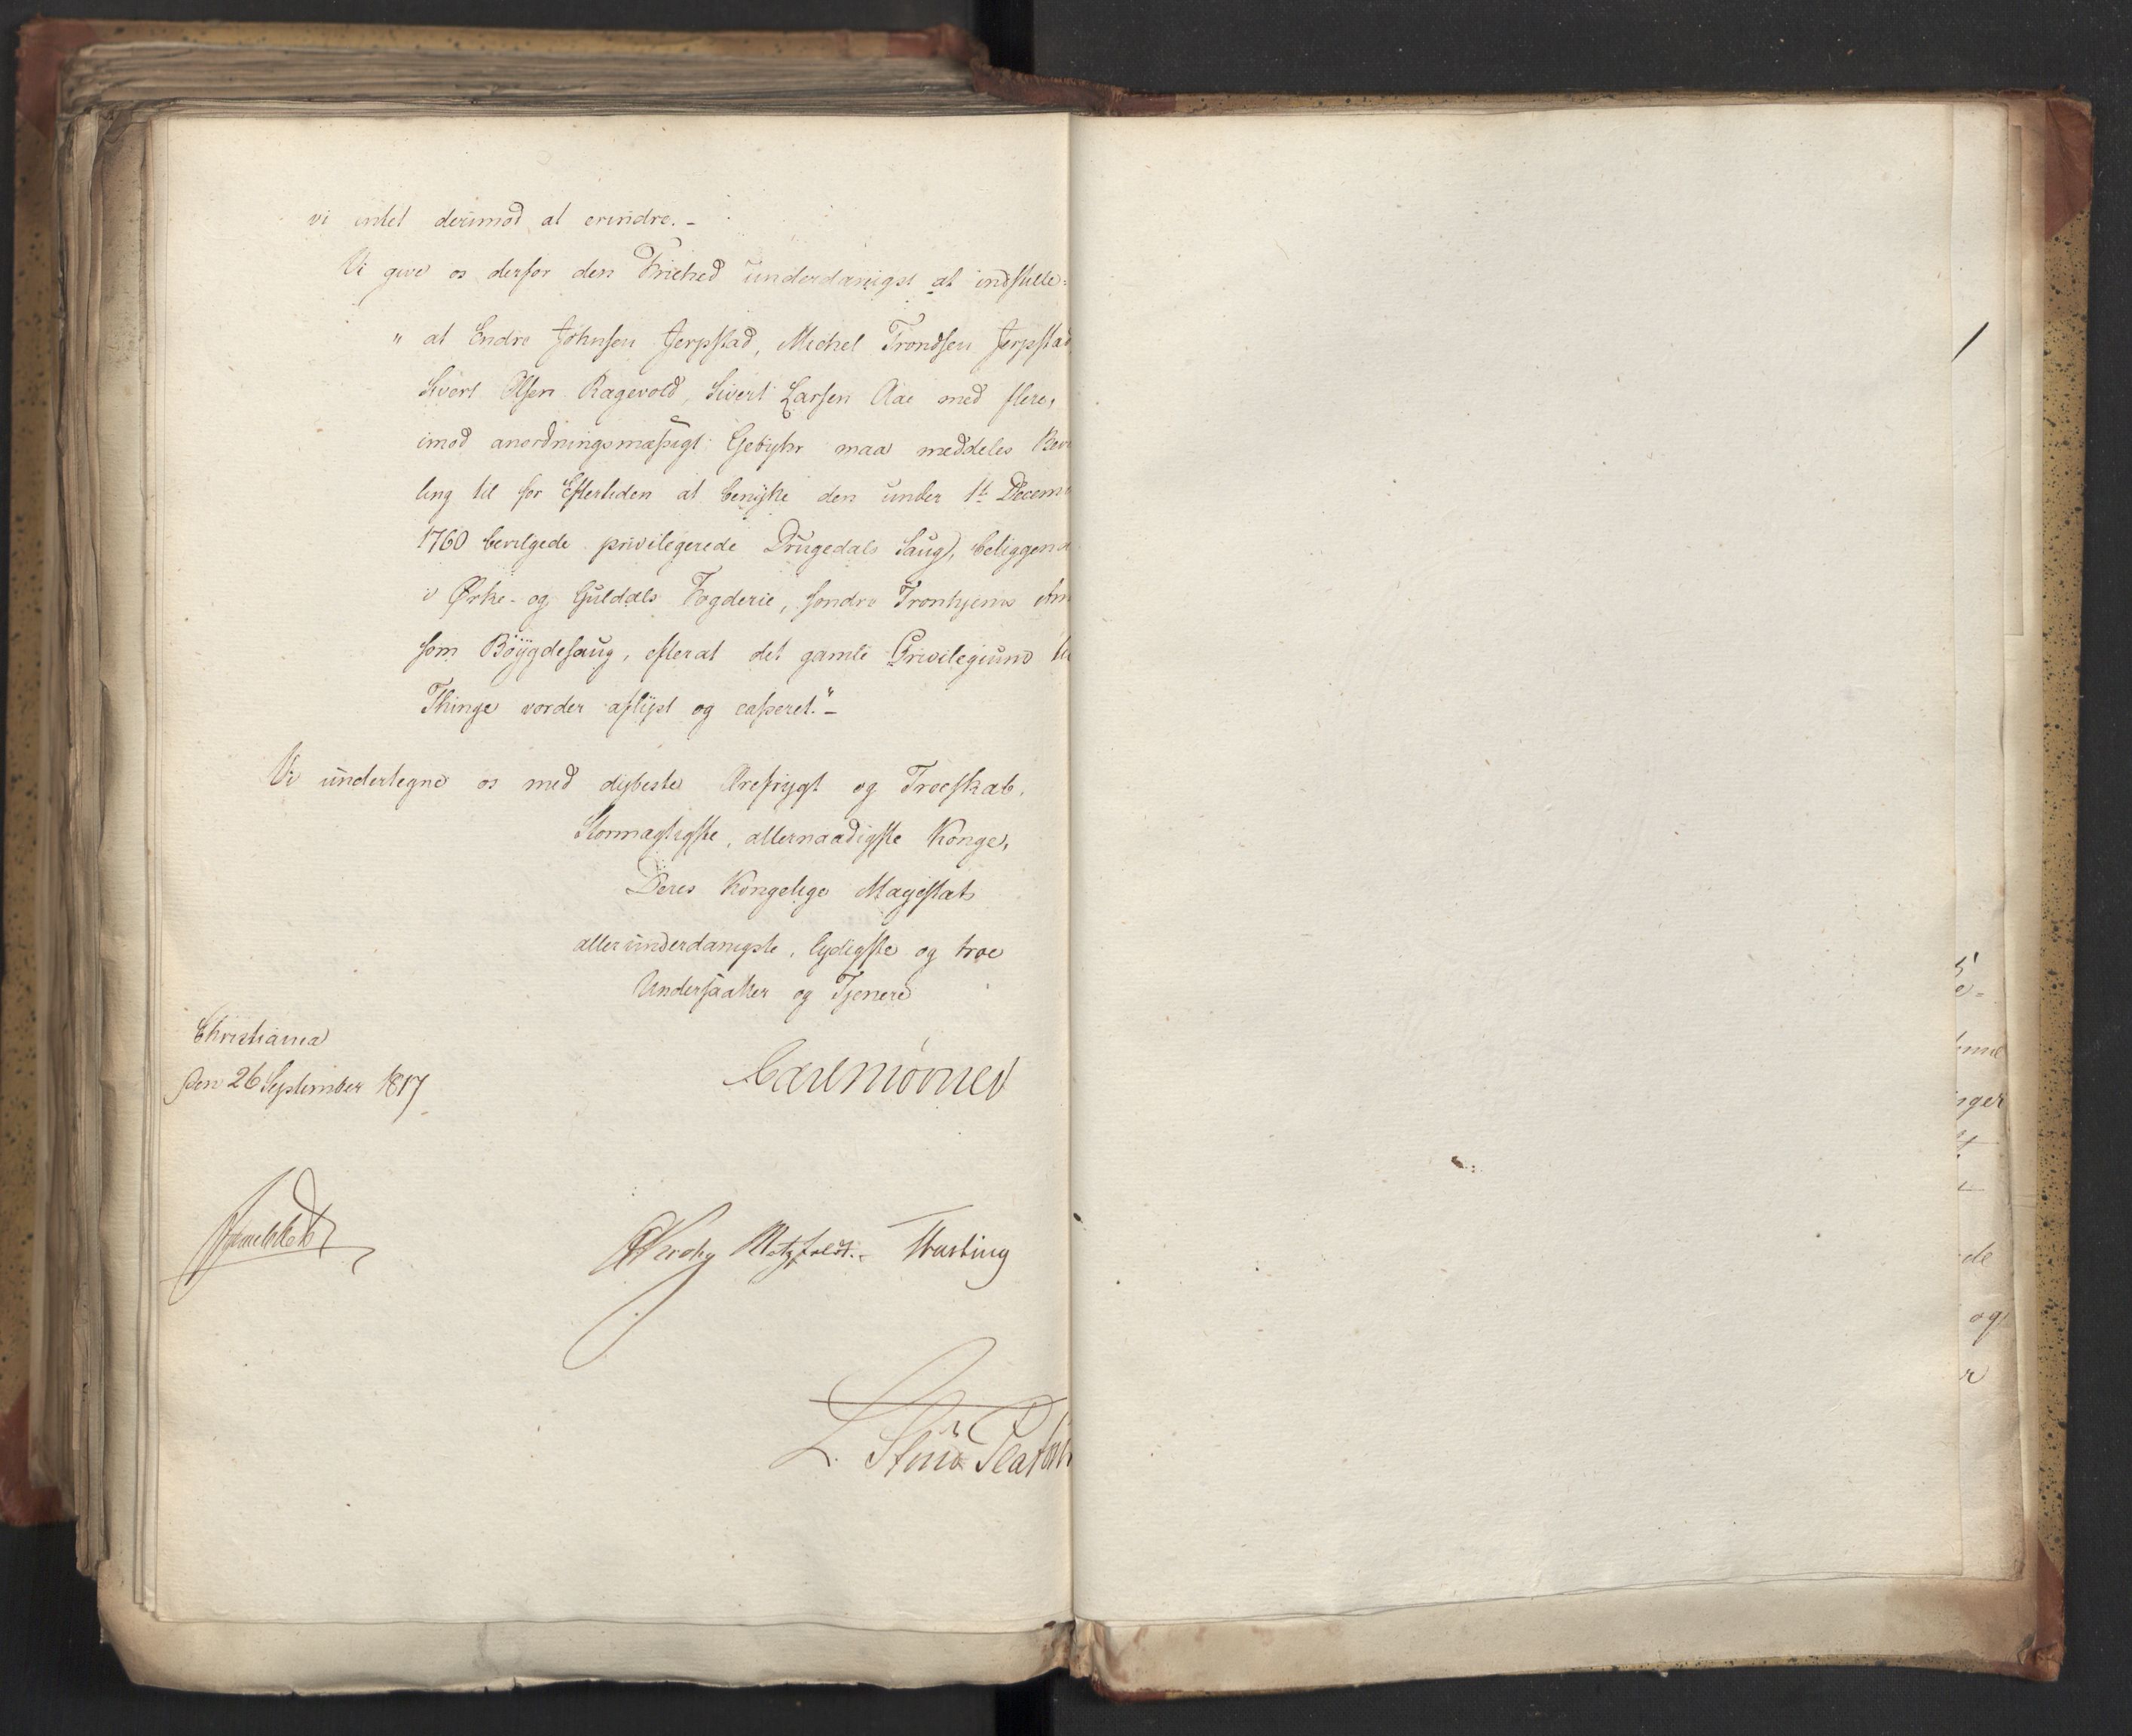 vi intet derimod at erindre. -
Vi give os derfor den Friehed underdanigst at indstille:
" at Endre Johnsen Jerpstad, Michel Trondsen Jerpstad
Sivert Olsen Ragevold, Sivert Larsen Aae med flere,
imod anordningsmæssigt Gebyhr maa meddeles Bev
ling til for Eftertiden at benytte den under 1te Decem
1760 bevilgede privilegerede Drugedals Saug, beliggend
i Ørke- og Guldals Fogderie, søndre Tronhjems Am
som Bøygdesaug, efterat det gamle Privilegium til
Thinge vorder aflyst og casseret." -
Vi undertegne os med dybeste Ærefrygt og Troeskab.
Stormægtigste, allernaadigste Konge,
Deres Kongelige Majestæts
allerunderdanigste, lydigste og troe
Undersaatter og Tjenere
Christiania
den 26 September 1817
Carl Mörner
Krohg Motzfeldt. Hasting
L. Stud Plato